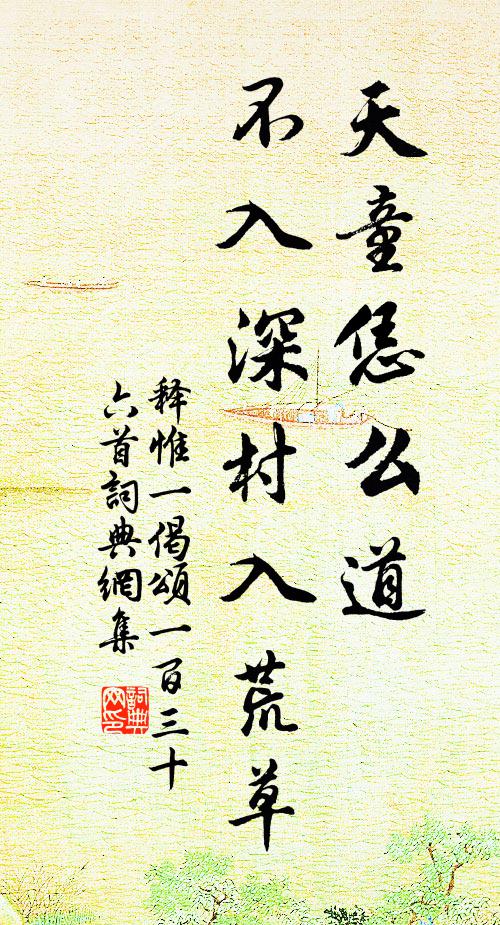 天童恁么道
不入深村入荒草
释惟一偈頌一百三十
六首詞典網集
詞典网印